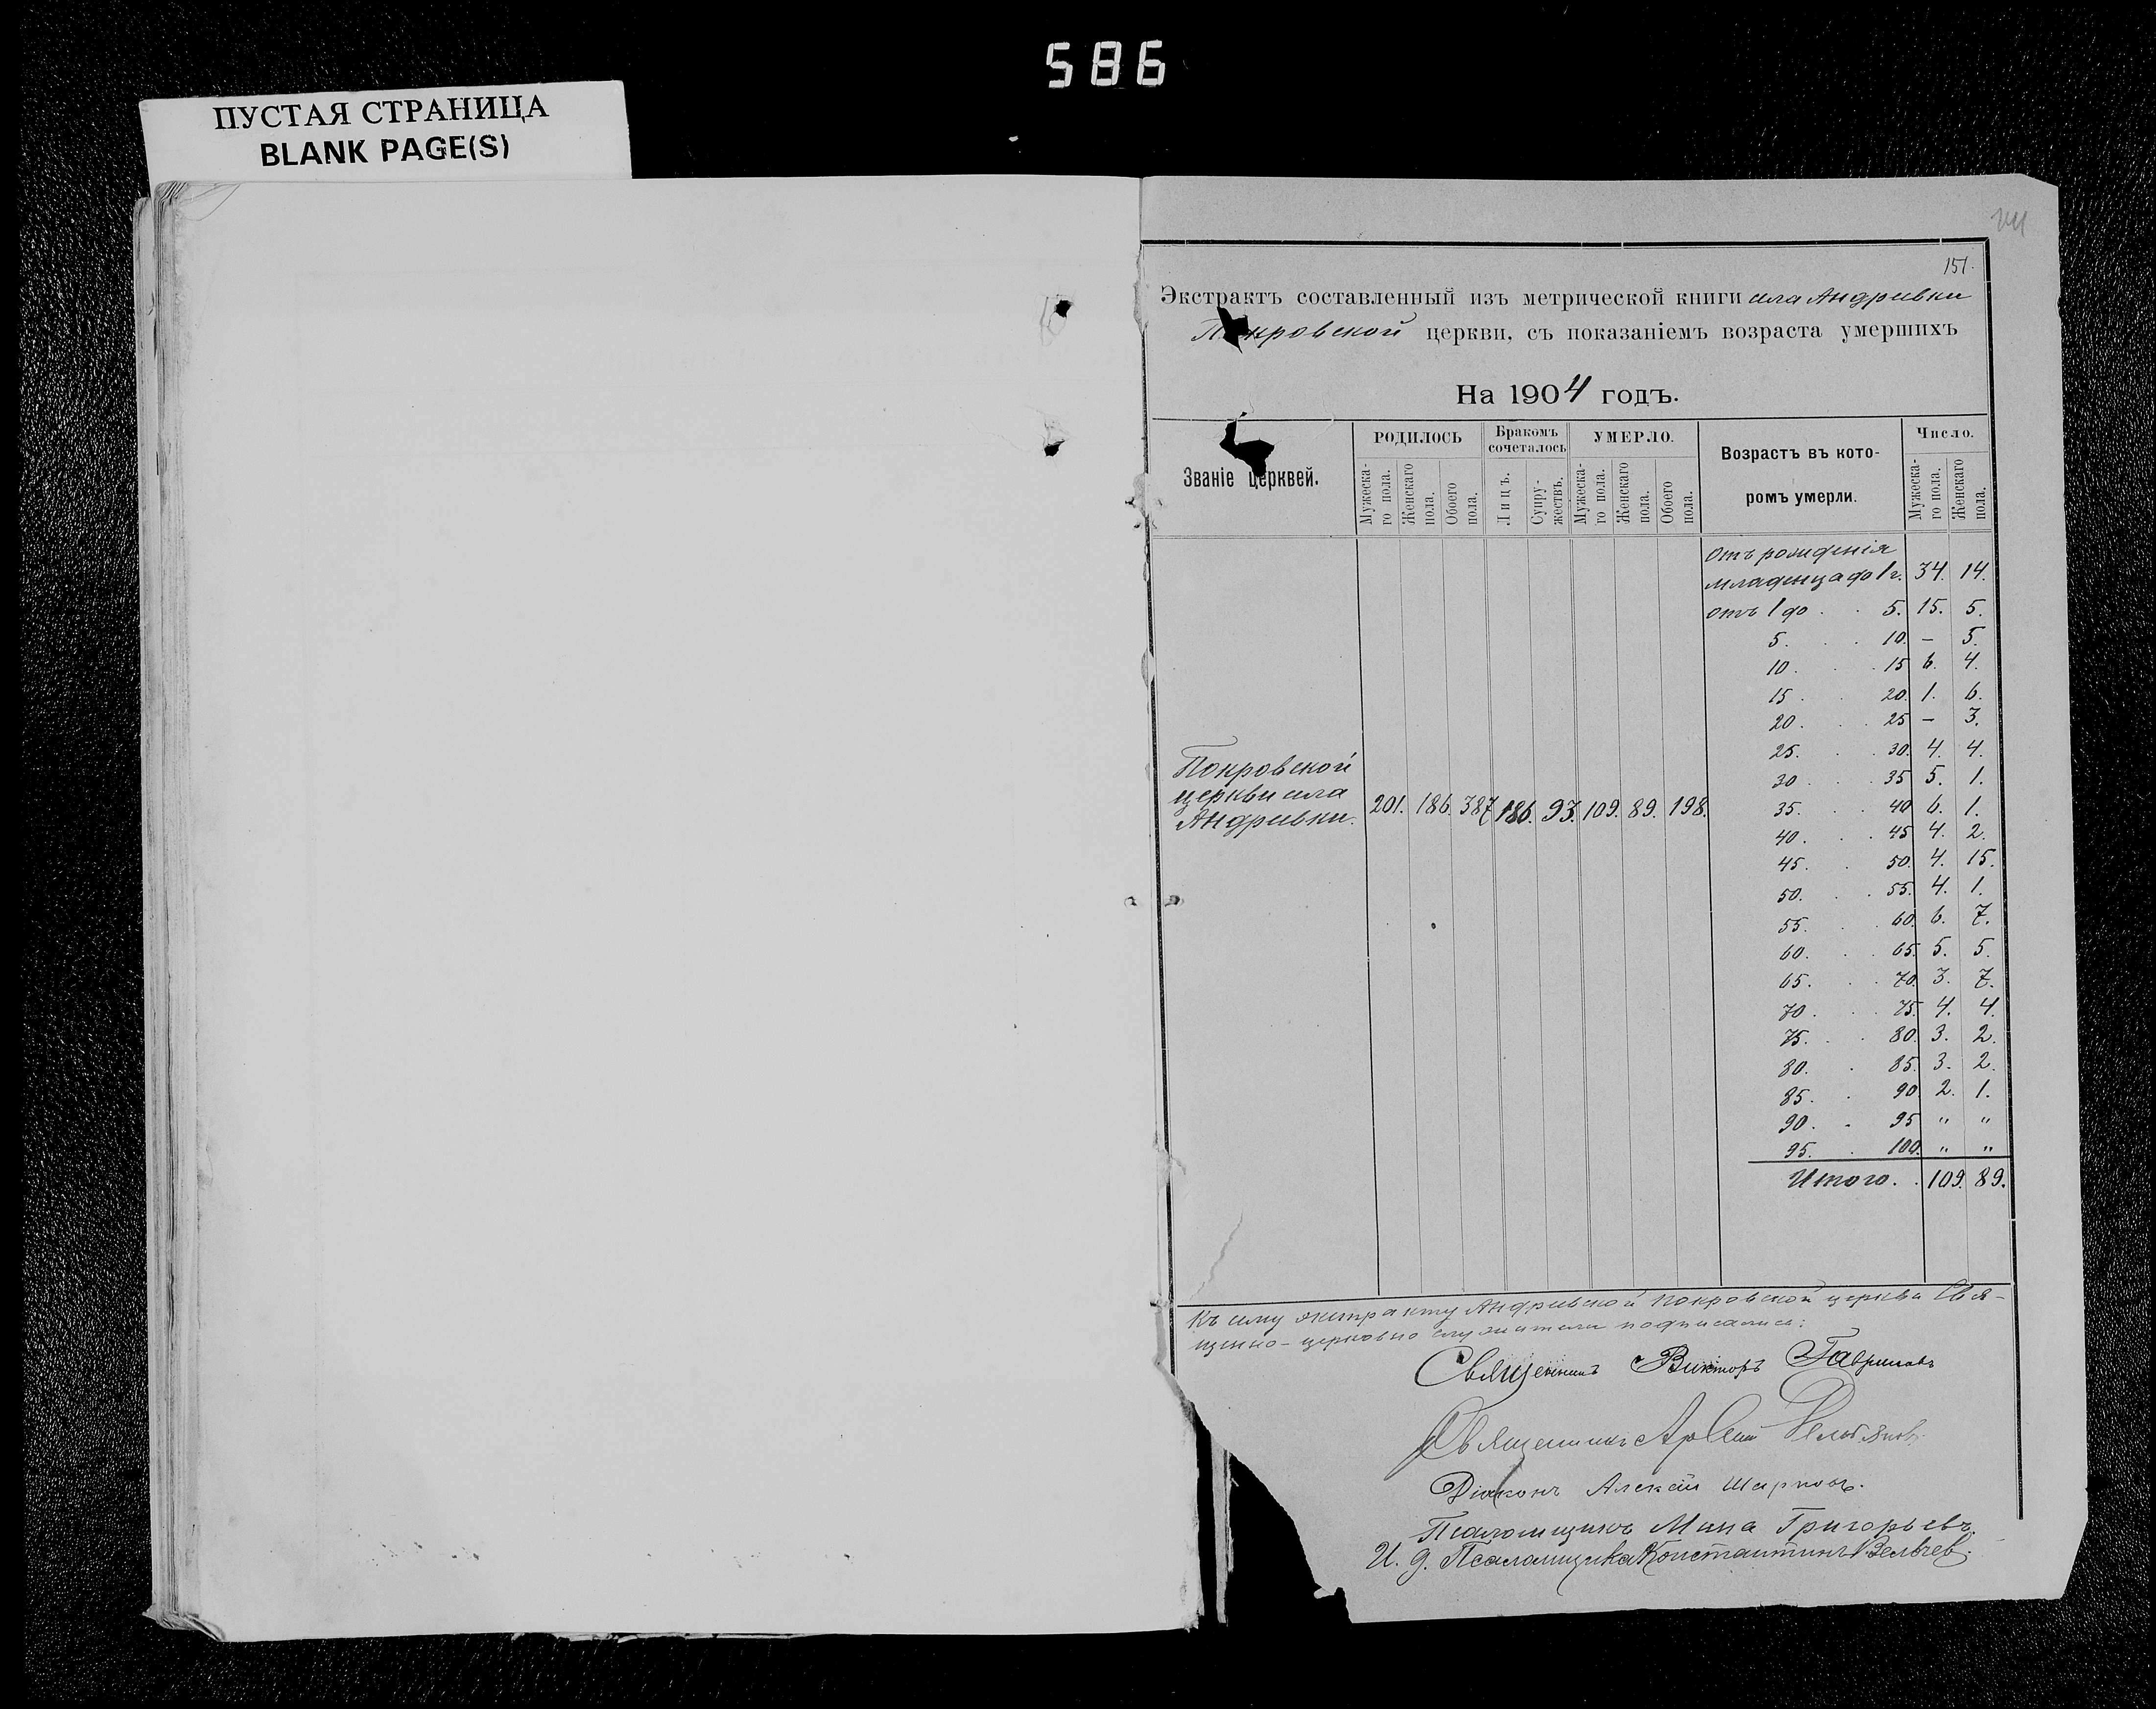 586
ПУСТАЯ СТРАНИЦА
BLANK PAGE(S)
151.
Экстрактъ составленный изъ метрической книги села Андреевки
Покровской церкви, съ показаніемъ возраста умершихъ
На 1904 годъ.
Званіе церквей.
РОДИЛОСЬ
Мужеска-
го пола.
Женскаго
пола.
Обоего
пола.
Бракомъ
сочеталось
Лицъ.
Супру-
жествъ.
УМЕРЛО.
Мужеска-
го пола.
Женскаго
пола.
Обоего
пола.
Возрастъ въ кото-
ромъ умерли.
Число.
Мужеска-
го пола.
Женскаго
пола.
Отъ рожденія
младенца до 1 г. 34. 14.
отъ 1 до . . 5. 15. 5.
5. . . 10. – 5.
10. . . 15 6. 4.
15. . . 20. 1. 6.
20. . . 25 – 3.
25. . . 30. 4. 4.
30 . . 35 5. 1.
35. . . 40 6. 1.
40. . . 45 4. 2.
45. . . 50. 4. 15.
50. . . 55. 4. 1.
55. . . 60. 6. 7.
60. . . 65. 5. 5.
65. . . 70. 3. 7.
70. . . 75. 4. 4.
75. . . 80. 3. 2.
80. . 85. 3. 2.
85. . 90. 2. 1.
90. . 95 " "
95. . 100. " "
Итого. . 109. 89.
Покровской
церкви села
Андреевки. 201. 186. 387 186. 93. 109. 89. 198.
Къ сему экстракту Андреевской Покровской церкви Свя-
щенно-церковно служители подписались:
Священникъ Викторъ Гавриловъ
Священникъ Арсеній
Діаконъ Алексѣй Шарковъ.
Псаломщикъ Мина Григорьевъ.
И. д. Псаломщика Константинъ Вельчев.